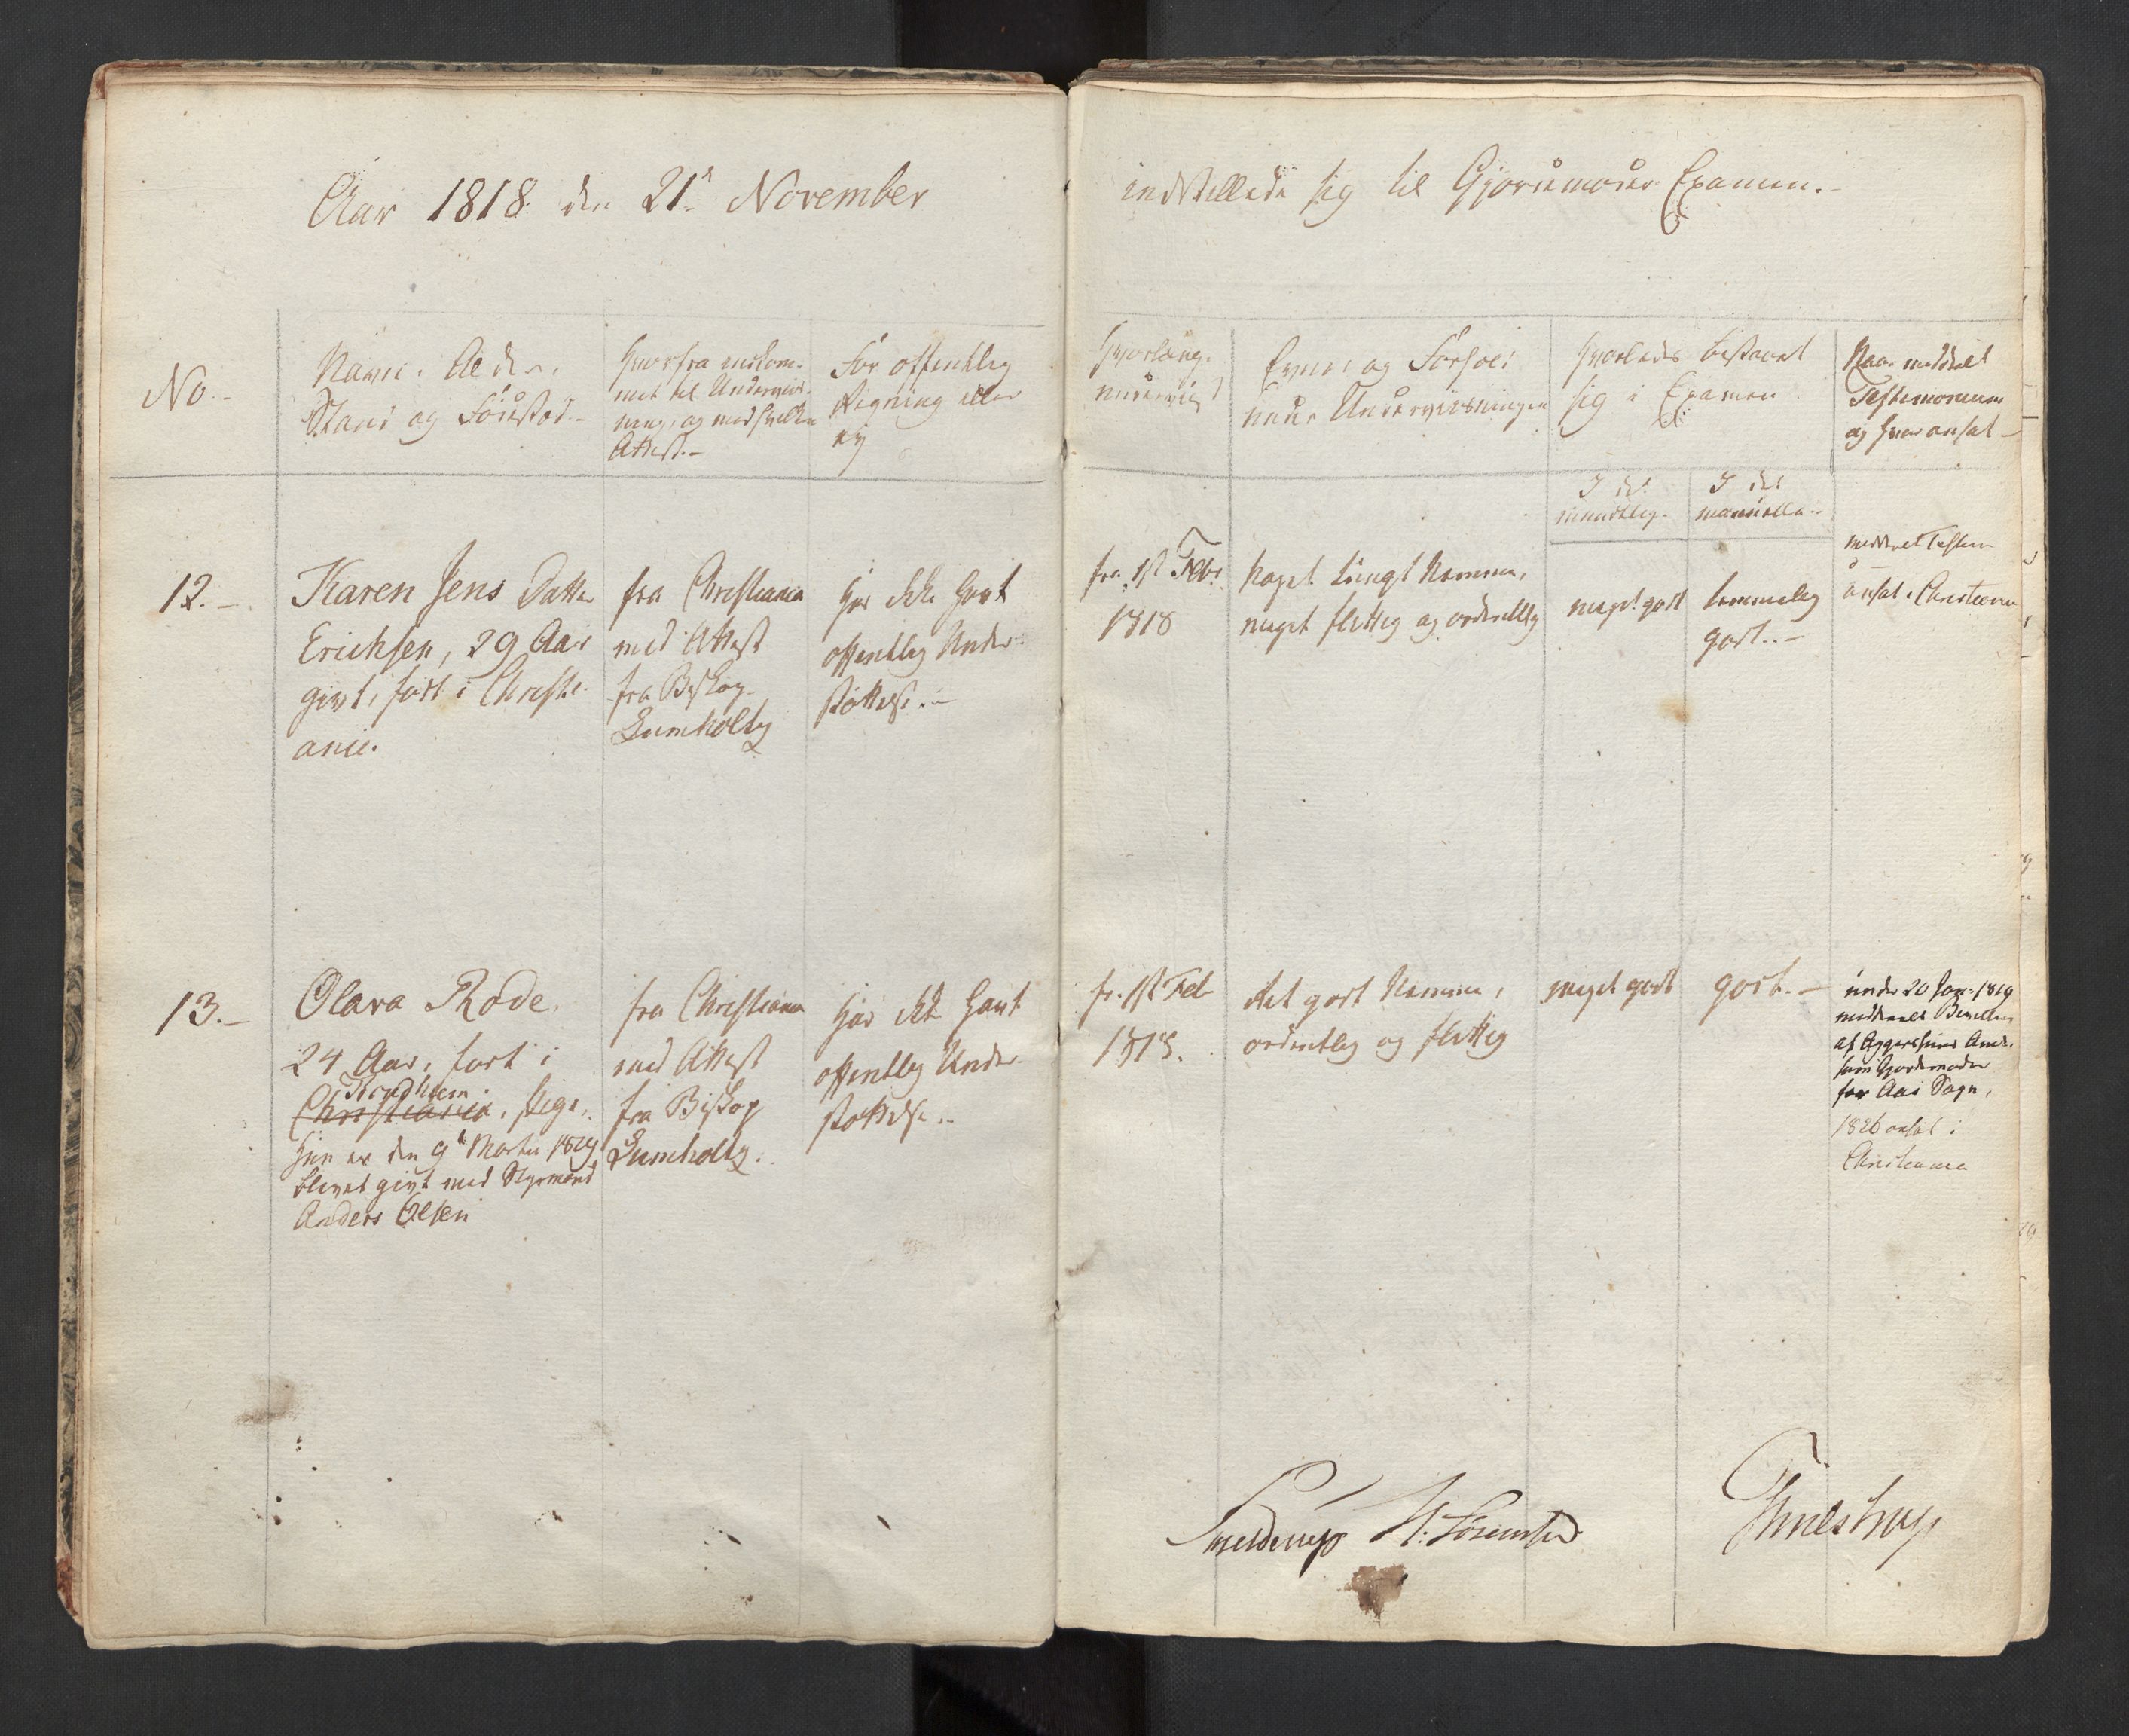 Aar 1818 den 21de November
indstillede sig til Gjordemoder Examen.-
No.-
Navn, Alder,
Stand og Födested.-
Hvorfra indkom-
met til Underviis-
ning, og med hvilken
Attest.-
For offentlig
Regning eller
ey
Hvorlænge
underviist
Evner og Forhold
under Underviisningen
Hvorledes bestaaet
sig i Examen
I det
mundtlig.
I det
manuelle.-
Naar meddeelt
Testimonium
og hvor ansat-
12.-
Karen Jens Datter
Erichsen, 29 Aar
givt, født i Christi-
ania.
fra Christiania
med Attest
fra Biskop
Lumholtz
Har ikke havt
offentlig Under-
støttelse.-
fra 1st Febr
1818
Noget tungt Nemme,
meget flittig og ordentlig
meget godt
temmelig
godt.-
meddeelt Testim
ansat i Christiania
13.-
Olava Rode.
24 Aar, født i
Trondhiem
Christiania, Pige,
Hun er den 9de Martii 1829
blevet givt med Styrmand
Anders Olsen
fra Christiania
med Attest
fra Biskop
Lumholtz.
Har ikke havt
offentlig Under-
støttelse.-
fr. 1st Feb
1818.
Ret godt Nemme,
ordentlig og flittig
meget godt
godt.-
under 20 Jan: 1819
meddeelt Bevilling
af Aggershuus Amt
som Gjordemoder
for Aas Sogn,
1826 ansat i
Christiania
Skjelderup
M: Sørenssen
Thulstrup